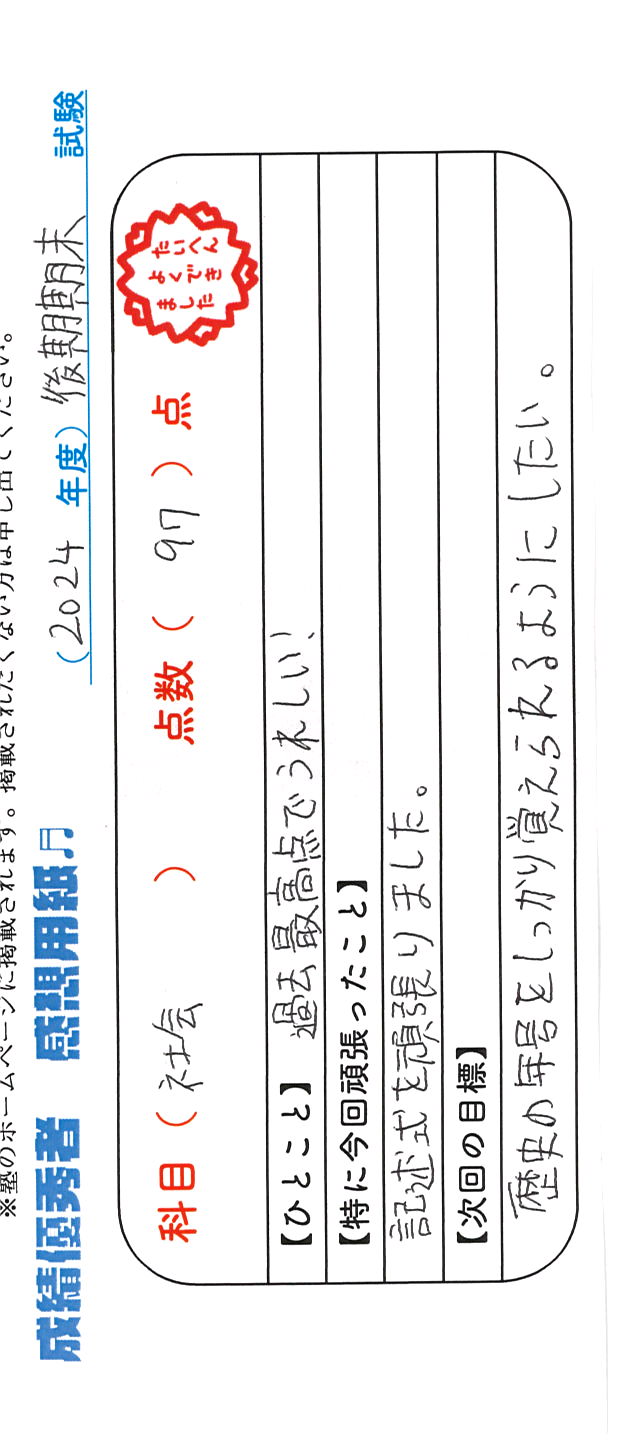 ※塾のホームページに掲載されます。掲載されたくない方は申し出てください。
成績優秀者 感想用紙♬ (2024 年度) 後期期末 試験
科目 ( 社会 ) 点数 ( 97 ) 点
たいへん
よくでき
ました
【ひとこと】 過去最高点でうれしい!
【特に今回頑張ったこと】
記述式を頑張りました。
【次回の目標】
歴史の年号をしっかり覚えられるようにしたい。